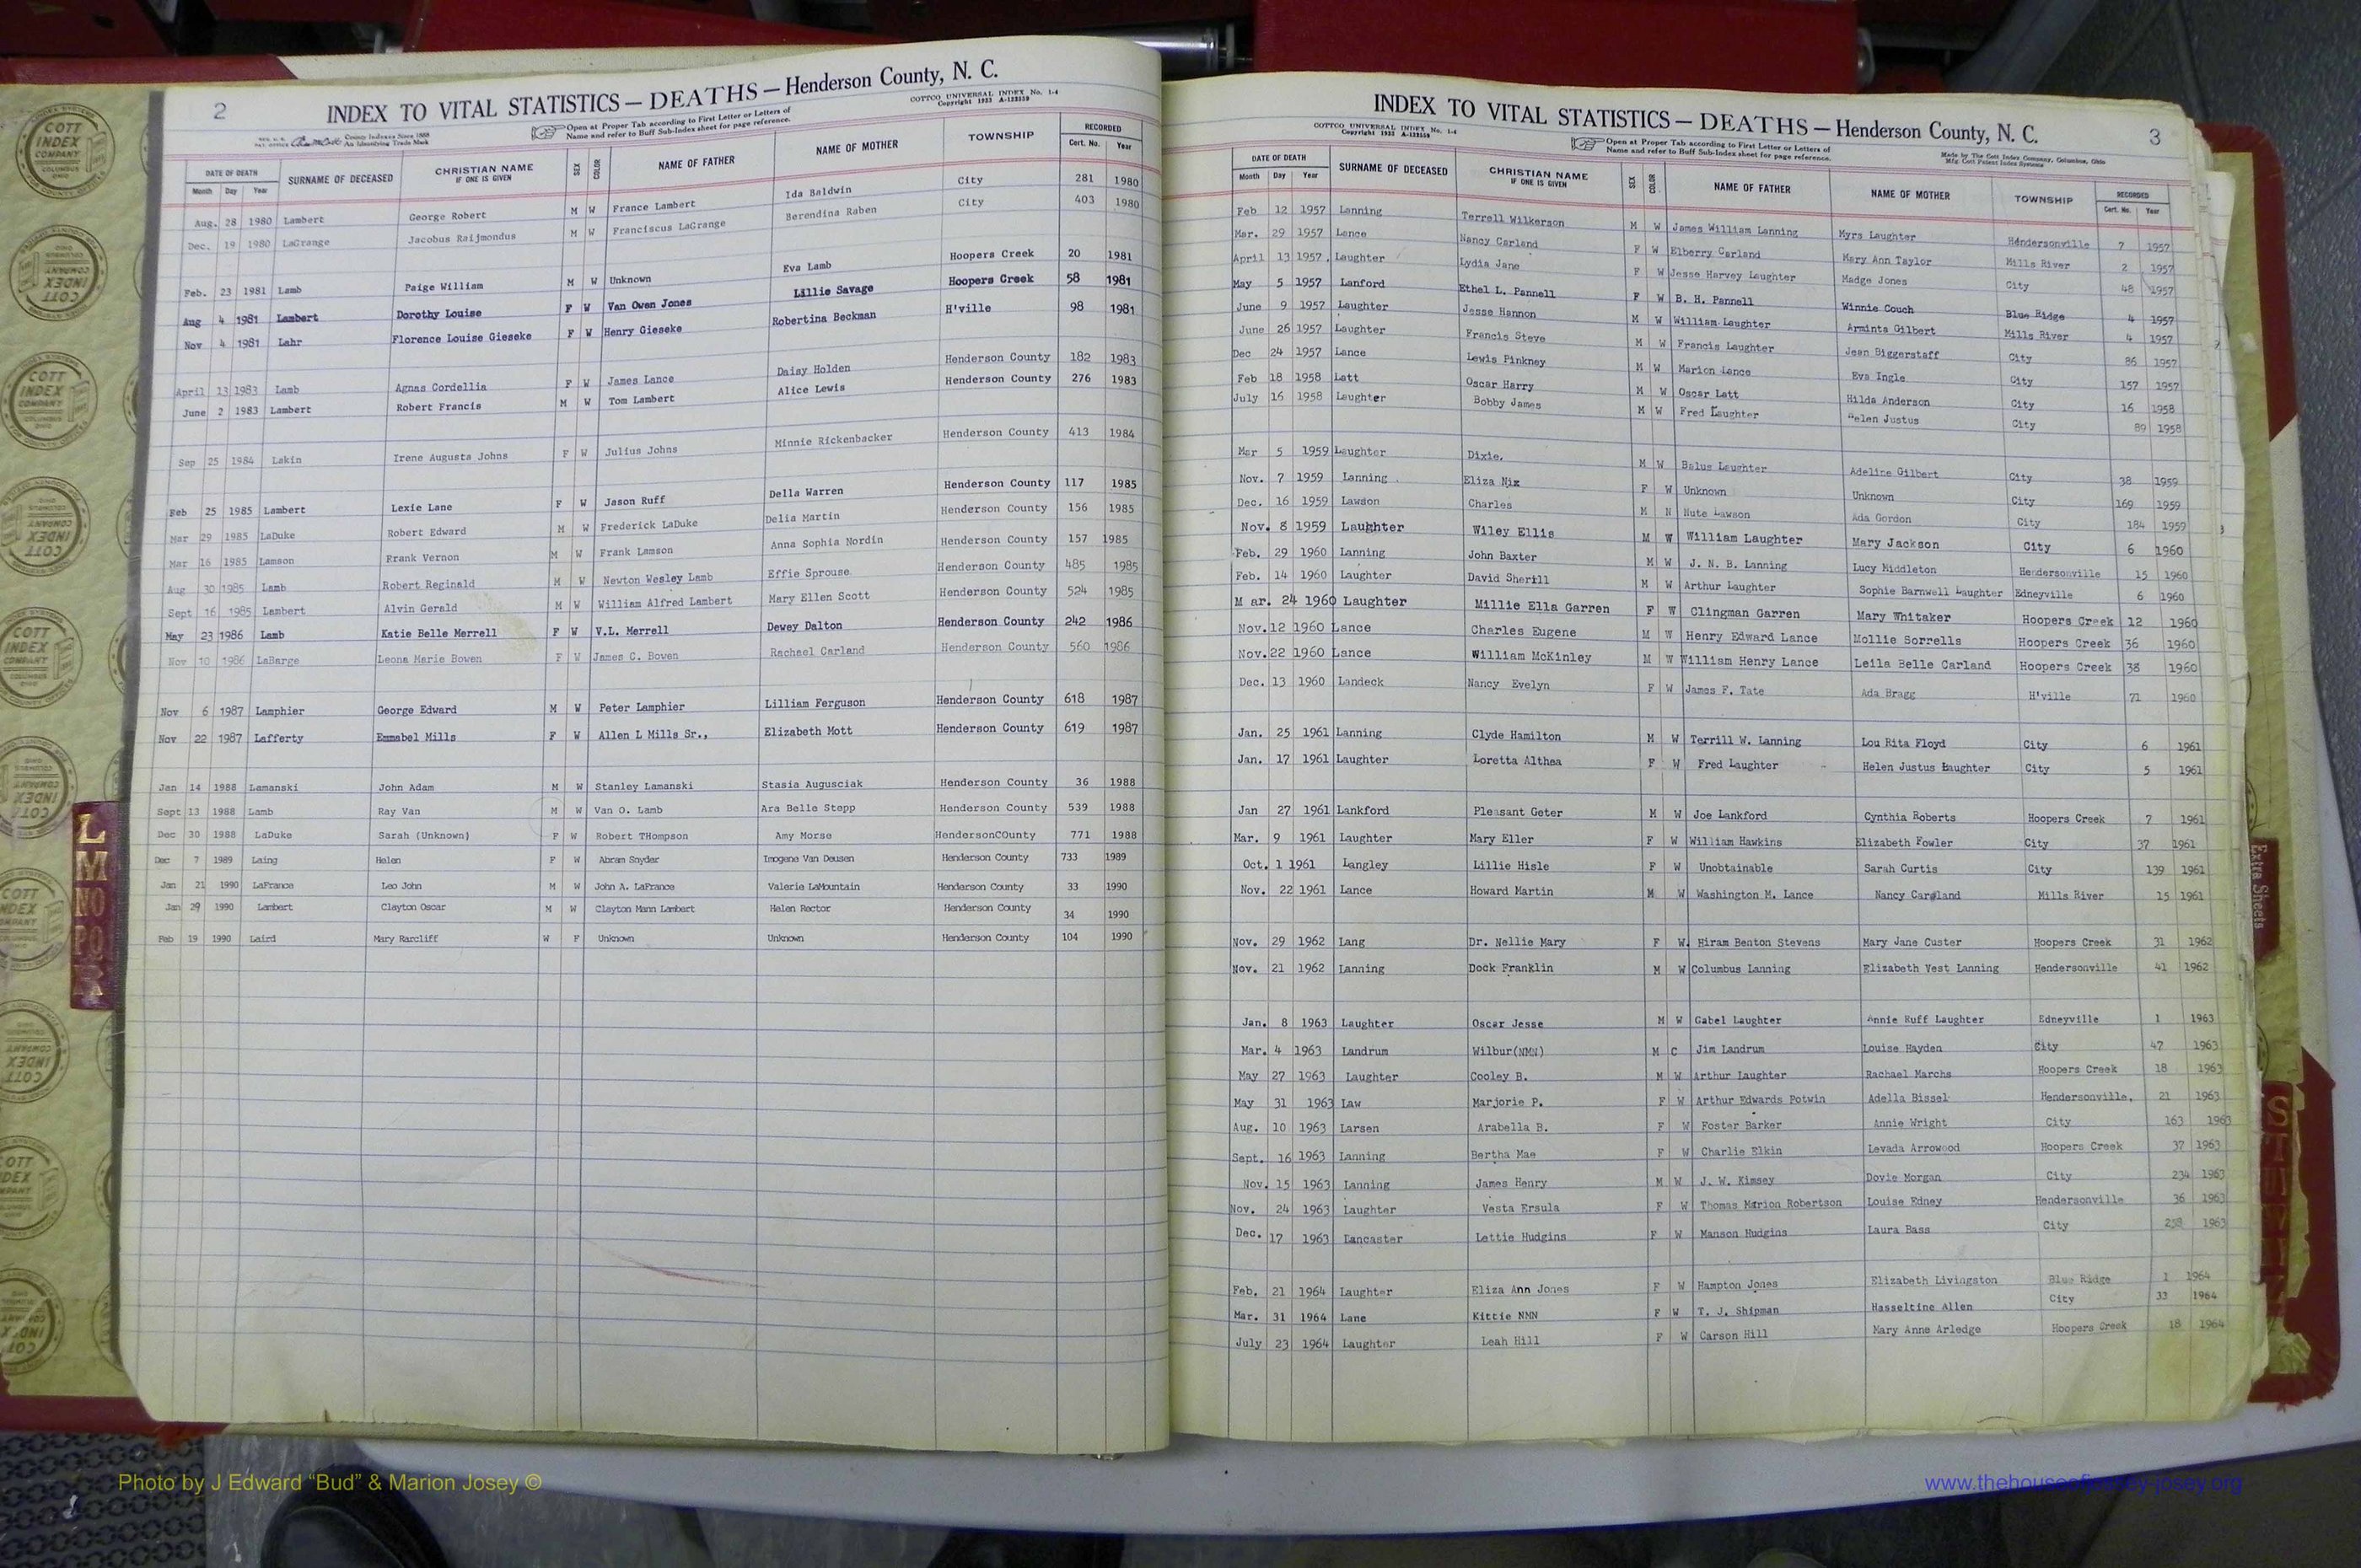 2
INDEX TO VITAL STATISTICS — DEATHS — Henderson County, N. C.
COTTCO UNIVERSAL INDEX No. 1-4
Copyright 1933 A-123359
County Indexes Since 1888
An Identifying Trade Mark
Open at Proper Tab according to First Letter or Letters of
Name and refer to Buff Sub-Index sheet for page reference.
DATE OF DEATH SURNAME OF DECEASED CHRISTIAN NAME IF ONE IS GIVEN SEX COLOR NAME OF FATHER NAME OF MOTHER TOWNSHIP RECORDED
Month Day Year Cert. No. Year
Aug. 28 1980 Lambert George Robert M W France Lambert Ida Baldwin City 281 1980
Dec. 19 1980 LaGrange Jacobus Raijmondus M W Franciscus LaGrange Berendina Raben City 403 1980
Feb. 23 1981 Lamb Paige William M W Unknown Eva Lamb Hoopers Creek 20 1981
Aug 4 1981 Lambert Dorothy Louise F W Van Owen Jones Lillie Savage Hoopers Creek 58 1981
Nov 4 1981 Lahr Florence Louise Gieseke F W Henry Gieseke Robertina Beckman H'ville 98 1981
April 13 1983 Lamb Agnas Cordellia F W James Lance Daisy Holden Henderson County 182 1983
June 2 1983 Lambert Robert Francis M W Tom Lambert Alice Lewis Henderson County 276 1983
Sep 25 1984 Lakin Irene Augusta Johns F W Julius Johns Minnie Rickenbacker Henderson County 413 1984
Feb 25 1985 Lambert Lexie Lane F W Jason Ruff Della Warren Henderson County 117 1985
Mar 29 1985 LaDuke Robert Edward M W Frederick LaDuke Delia Martin Henderson County 156 1985
Mar 16 1985 Lamson Frank Vernon M W Frank Lamson Anna Sophia Nordin Henderson County 157 1985
Aug 30 1985 Lamb Robert Reginald M W Newton Wesley Lamb Effie Sprouse Henderson County 485 1985
Sept 16 1985 Lambert Alvin Gerald M W William Alfred Lambert Mary Ellen Scott Henderson County 524 1985
May 23 1986 Lamb Katie Belle Merrell F W V.L. Merrell Dewey Dalton Henderson County 242 1986
Nov 10 1986 LaBarge Leona Marie Bowen F W James C. Boven Rachael Carland Henderson County 560 1986
Nov 6 1987 Lamphier George Edward M W Peter Lamphier Lilliam Ferguson Henderson County 618 1987
Nov 22 1987 Lafferty Emmabel Mills F W Allen L Mills Sr., Elizabeth Mott Henderson County 619 1987
Jan 14 1988 Lamanski John Adam M W Stanley Lamanski Stasia Augusciak Henderson County 36 1988
Sept 13 1988 Lamb Ray Van M W Van O. Lamb Ara Belle Stepp Henderson County 539 1988
Dec 30 1988 LaDuke Sarah (Unknown) F W Robert THompson Amy Morse HendersonCOunty 771 1988
Dec 7 1989 Laing Helen F W Abram Snyder Imogene Van Deusen Henderson County 733 1989
Jan 21 1990 LaFrance Leo John M W John A. LaFrance Valerie LaMountain Henderson County 33 1990
Jan 29 1990 Lambert Clayton Oscar M W Clayton Mann Lambert Helen Rector Henderson County 34 1990
Feb 19 1990 Laird Mary Rarcliff W F Unknown Unknown Henderson County 104 1990
INDEX TO VITAL STATISTICS — DEATHS — Henderson County, N. C.
3
COTTCO UNIVERSAL INDEX No. 1-4
Copyright 1933 A-123359
Open at Proper Tab according to First Letter or Letters of
Name and refer to Buff Sub-Index sheet for page reference.
Made by The Cott Index Company, Columbus, Ohio
Mfg. Cott Patent Index Systems
DATE OF DEATH SURNAME OF DECEASED CHRISTIAN NAME IF ONE IS GIVEN SEX COLOR NAME OF FATHER NAME OF MOTHER TOWNSHIP RECORDED
Month Day Year Cert. No. Year
Feb 12 1957 Lanning Terrell Wilkerson M W James William Lanning Myra Laughter Hendersonville 7 1957
Mar. 29 1957 Lance Nancy Carland F W Elberry Carland Mary Ann Taylor Mills River 2 1957
April 13 1957 Laughter Lydia Jane F W Jesse Harvey Laughter Madge Jones City 48 1957
May 5 1957 Lanford Ethel L. Pannell F W B. H. Pannell Winnie Couch Blue Ridge 4 1957
June 9 1957 Laughter Jesse Hannon M W William Laughter Arminta Gilbert Mills River 4 1957
June 26 1957 Laughter Francis Steve M W Francis Laughter Jean Biggerstaff City 86 1957
Dec 24 1957 Lance Lewis Pinkney M W Marion Lance Eva Ingle City 157 1957
Feb 18 1958 Latt Oscar Harry M W Oscar Latt Hilda Anderson City 16 1958
July 16 1958 Laughter Bobby James M W Fred Laughter Helen Justus City 89 1958
Mar 5 1959 Laughter Dixie, M W Balus Laughter Adeline Gilbert City 38 1959
Nov. 7 1959 Lanning Eliza Nix F W Unknown Unknown City 169 1959
Dec. 16 1959 Lawson Charles M N Nute Lawson Ada Gordon City 184 1959
Nov. 8 1959 Laughter Wiley Ellis M W William Laughter Mary Jackson City 6 1960
Feb. 29 1960 Lanning John Baxter M W J. N. B. Lanning Lucy Middleton Hendersonville 15 1960
Feb. 14 1960 Laughter David Sherill M W Arthur Laughter Sophie Barnwell Laughter Edneyville 6 1960
M ar. 24 1960 Laughter Millie Ella Garren F W Clingman Garren Mary Whitaker Hoopers Creek 12 1960
Nov.12 1960 Lance Charles Eugene M W Henry Edward Lance Mollie Sorrells Hoopers Creek 36 1960
Nov.22 1960 Lance William McKinley M W William Henry Lance Leila Belle Carland Hoopers Creek 38 1960
Dec. 13 1960 Landeck Nancy Evelyn F W James F. Tate Ada Bragg H'ville 71 1960
Jan. 25 1961 Lanning Clyde Hamilton M W Terrill W. Lanning Lou Rita Floyd City 6 1961
Jan. 17 1961 Laughter Loretta Althea F W Fred Laughter Helen Justus Laughter City 5 1961
Jan 27 1961 Lankford Pleasant Geter M W Joe Lankford Cynthia Roberts Hoopers Creek 7 1961
Mar. 9 1961 Laughter Mary Eller F W William Hawkins Elizabeth Fowler City 37 1961
Oct. 1 1961 Langley Lillie Hisle F W Unobtainable Sarah Curtis City 139 1961
Nov. 22 1961 Lance Howard Martin M W Washington M. Lance Nancy Carland Mills River 15 1961
Nov. 29 1962 Lang Dr. Nellie Mary F W Hiram Benton Stevens Mary Jane Custer Hoopers Creek 31 1962
Nov. 21 1962 Lanning Dock Franklin M W Columbus Lanning Elizabeth Vest Lanning Hendersonville 41 1962
Jan. 8 1963 Laughter Oscar Jesse M W Gabel Laughter Annie Ruff Laughter Edneyville 1 1963
Mar. 4 1963 Landrum Wilbur(NMN) M C Jim Landrum Louise Hayden City 47 1963
May 27 1963 Laughter Cooley B. M W Arthur Laughter Rachael Marchs Hoopers Creek 18 1963
May 31 1963 Law Marjorie P. F W Arthur Edwards Potwin Adella Bissel Hendersonville, 21 1963
Aug. 10 1963 Larsen Arabella B. F W Foster Barker Annie Wright City 163 1963
Sept. 16 1963 Lanning Bertha Mae F W Charlie Elkin Levada Arrowood Hoopers Creek 37 1963
Nov. 15 1963 Lanning James Henry M W J. W. Kimsey Dovie Morgan City 234 1963
Nov. 24 1963 Laughter Vesta Ersula F W Thomas Marion Robertson Louise Edney Hendersonville 36 1963
Dec. 17 1963 Lancaster Lettie Hudgins F W Manson Hudgins Laura Bass City 258 1963
Feb. 21 1964 Laughter Eliza Ann Jones F W Hampton Jones Elizabeth Livingston Blue Ridge 1 1964
Mar. 31 1964 Lane Kittie NMN F W T. J. Shipman Hasseltine Allen City 33 1964
July 23 1964 Laughter Leah Hill F W Carson Hill Mary Anne Arledge Hoopers Creek 18 1964
L
M
NO
PQ
R
Extra Sheets
COTT INDEX COMPANY COLUMBUS OHIO
Photo by J Edward “Bud” & Marion Josey ©